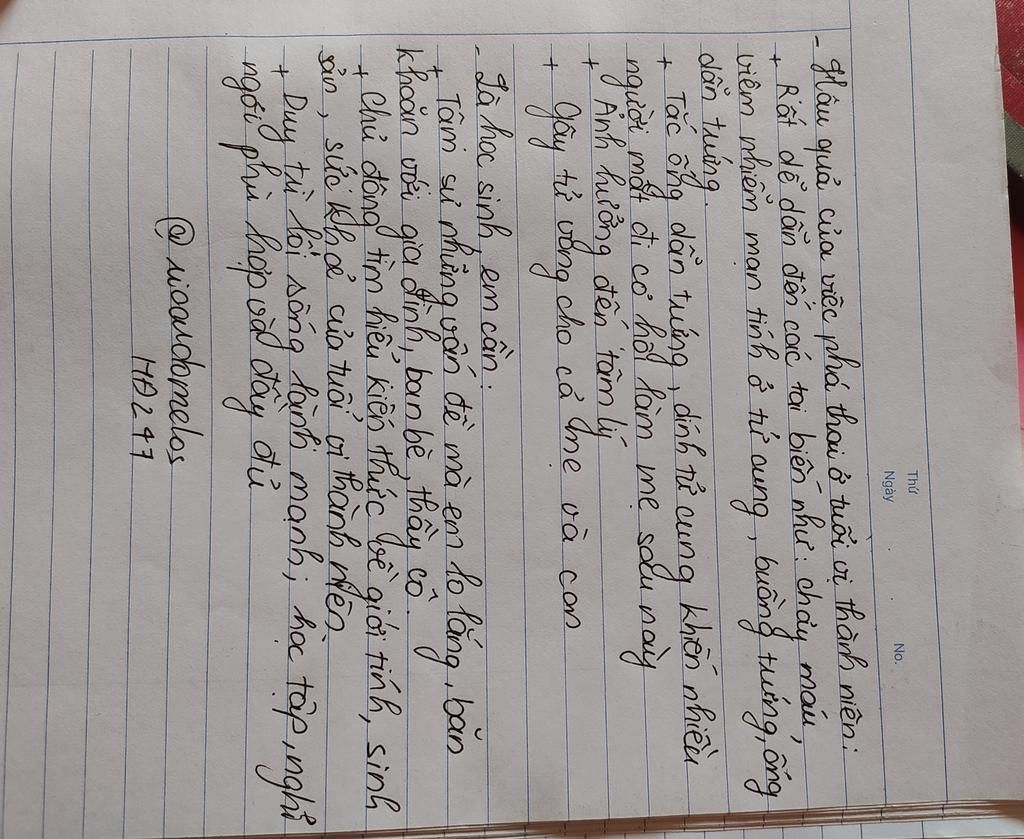 Thứ
Ngày
No.
- Hậu quả của việc phá thai ở tuổi vị thành niên:
+ Rất dễ dẫn đến các tai biến như: chảy máu,
viêm nhiễm mạn tính ở tử cung, buồng trứng, ống
dẫn trứng.
+ Tắc ống dẫn trứng, dính tử cung khiến nhiều
người mất đi cơ hội làm mẹ sau này
+ Ảnh hưởng đến tâm lý
+ Gây tử vong cho cả mẹ và con
- Là học sinh, em cần:
+ Tâm sự những vấn đề mà em lo lắng, băn
khoăn với gia đình, bạn bè, thầy cô.
+ Chủ động tìm hiểu kiến thức về giới tính, sinh
sản, sức khỏe của tuổi vị thành niên
+ Duy trì lối sống lành mạnh; học tập, nghỉ
ngơi phù hợp và đầy đủ